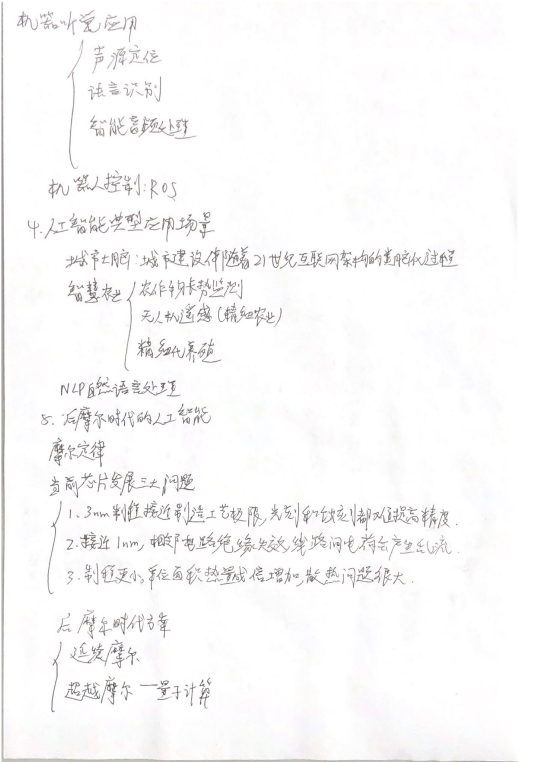 机器听觉应用
声源定位
语言识别
智能音频处理
机器人控制:ROS
4.人工智能典型应用场景
城市大脑:城市建设伴随着21世纪互联网架构的类脑化过程
智慧农业 农作物长势监测
无人机遥感(精细农业)
精细化养殖
NLP自然语言处理
5.后摩尔时代的人工智能
摩尔定律
当前芯片发展三大问题
1.3nm制程接近制造工艺极限,光刻和蚀刻都难提高精度.
2.接近1nm,相邻电路绝缘失效,线路间电荷会产生乱流.
3.制程更小,单位面积热量成倍增加,散热问题很大.
后摩尔时代方案
延续摩尔
超越摩尔—量子计算